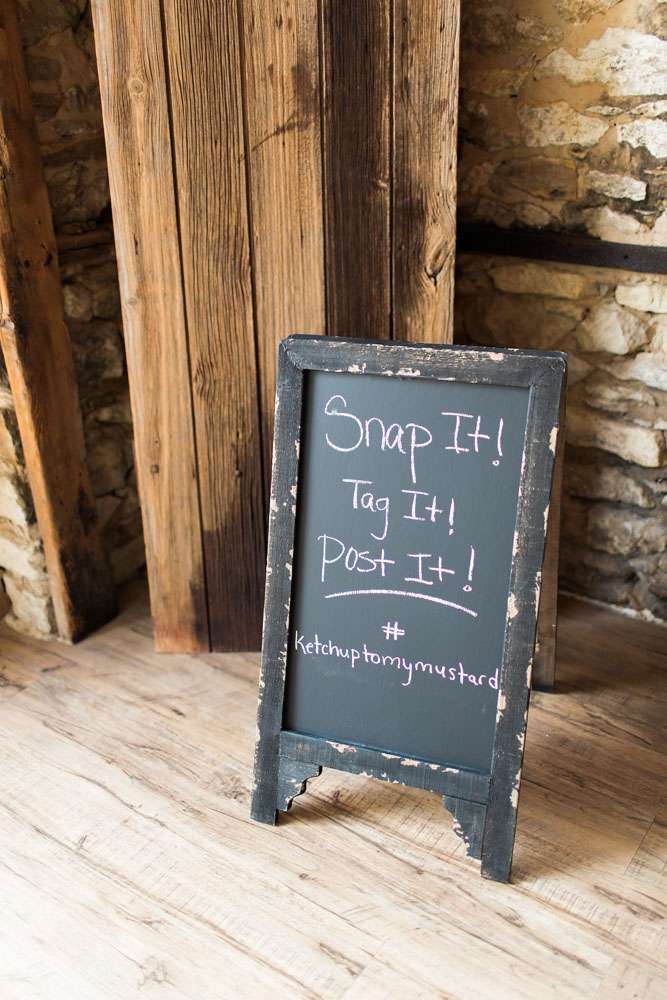 Snap It!
Tag It!
Post It!
#
ketchuptomymustard